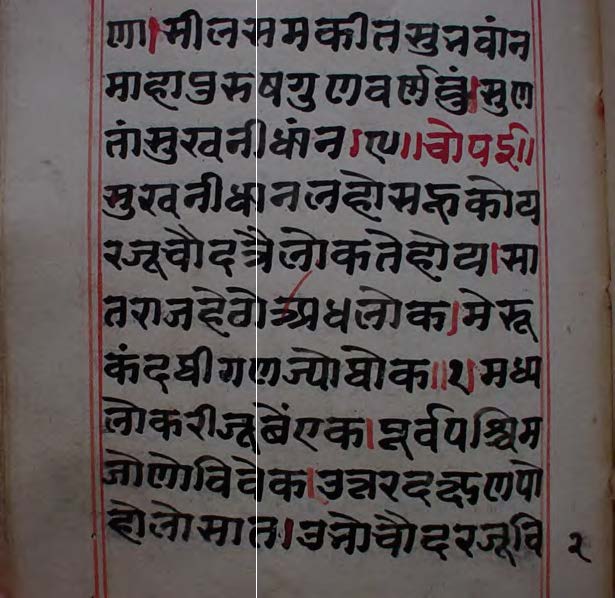 णा।सीलसमकीतसुनवांन
माहापुरुषगुणवर्णवुं।सुण
तांसुखनीधांन।ए॥चोपई॥
सुखनीधानलहोसहुकोय
रजूचौदत्रैलोकतेहोय।सा
तराजहेठोअधलोक।मेरू
कंदथीगणज्योथोक॥१।मध्य
लोकरीजूबेंएक।पूर्वपश्चिम
जोणोविवेक।उत्तरदक्षणपो
होलोसात।उत्तोचौदरजूवि
२